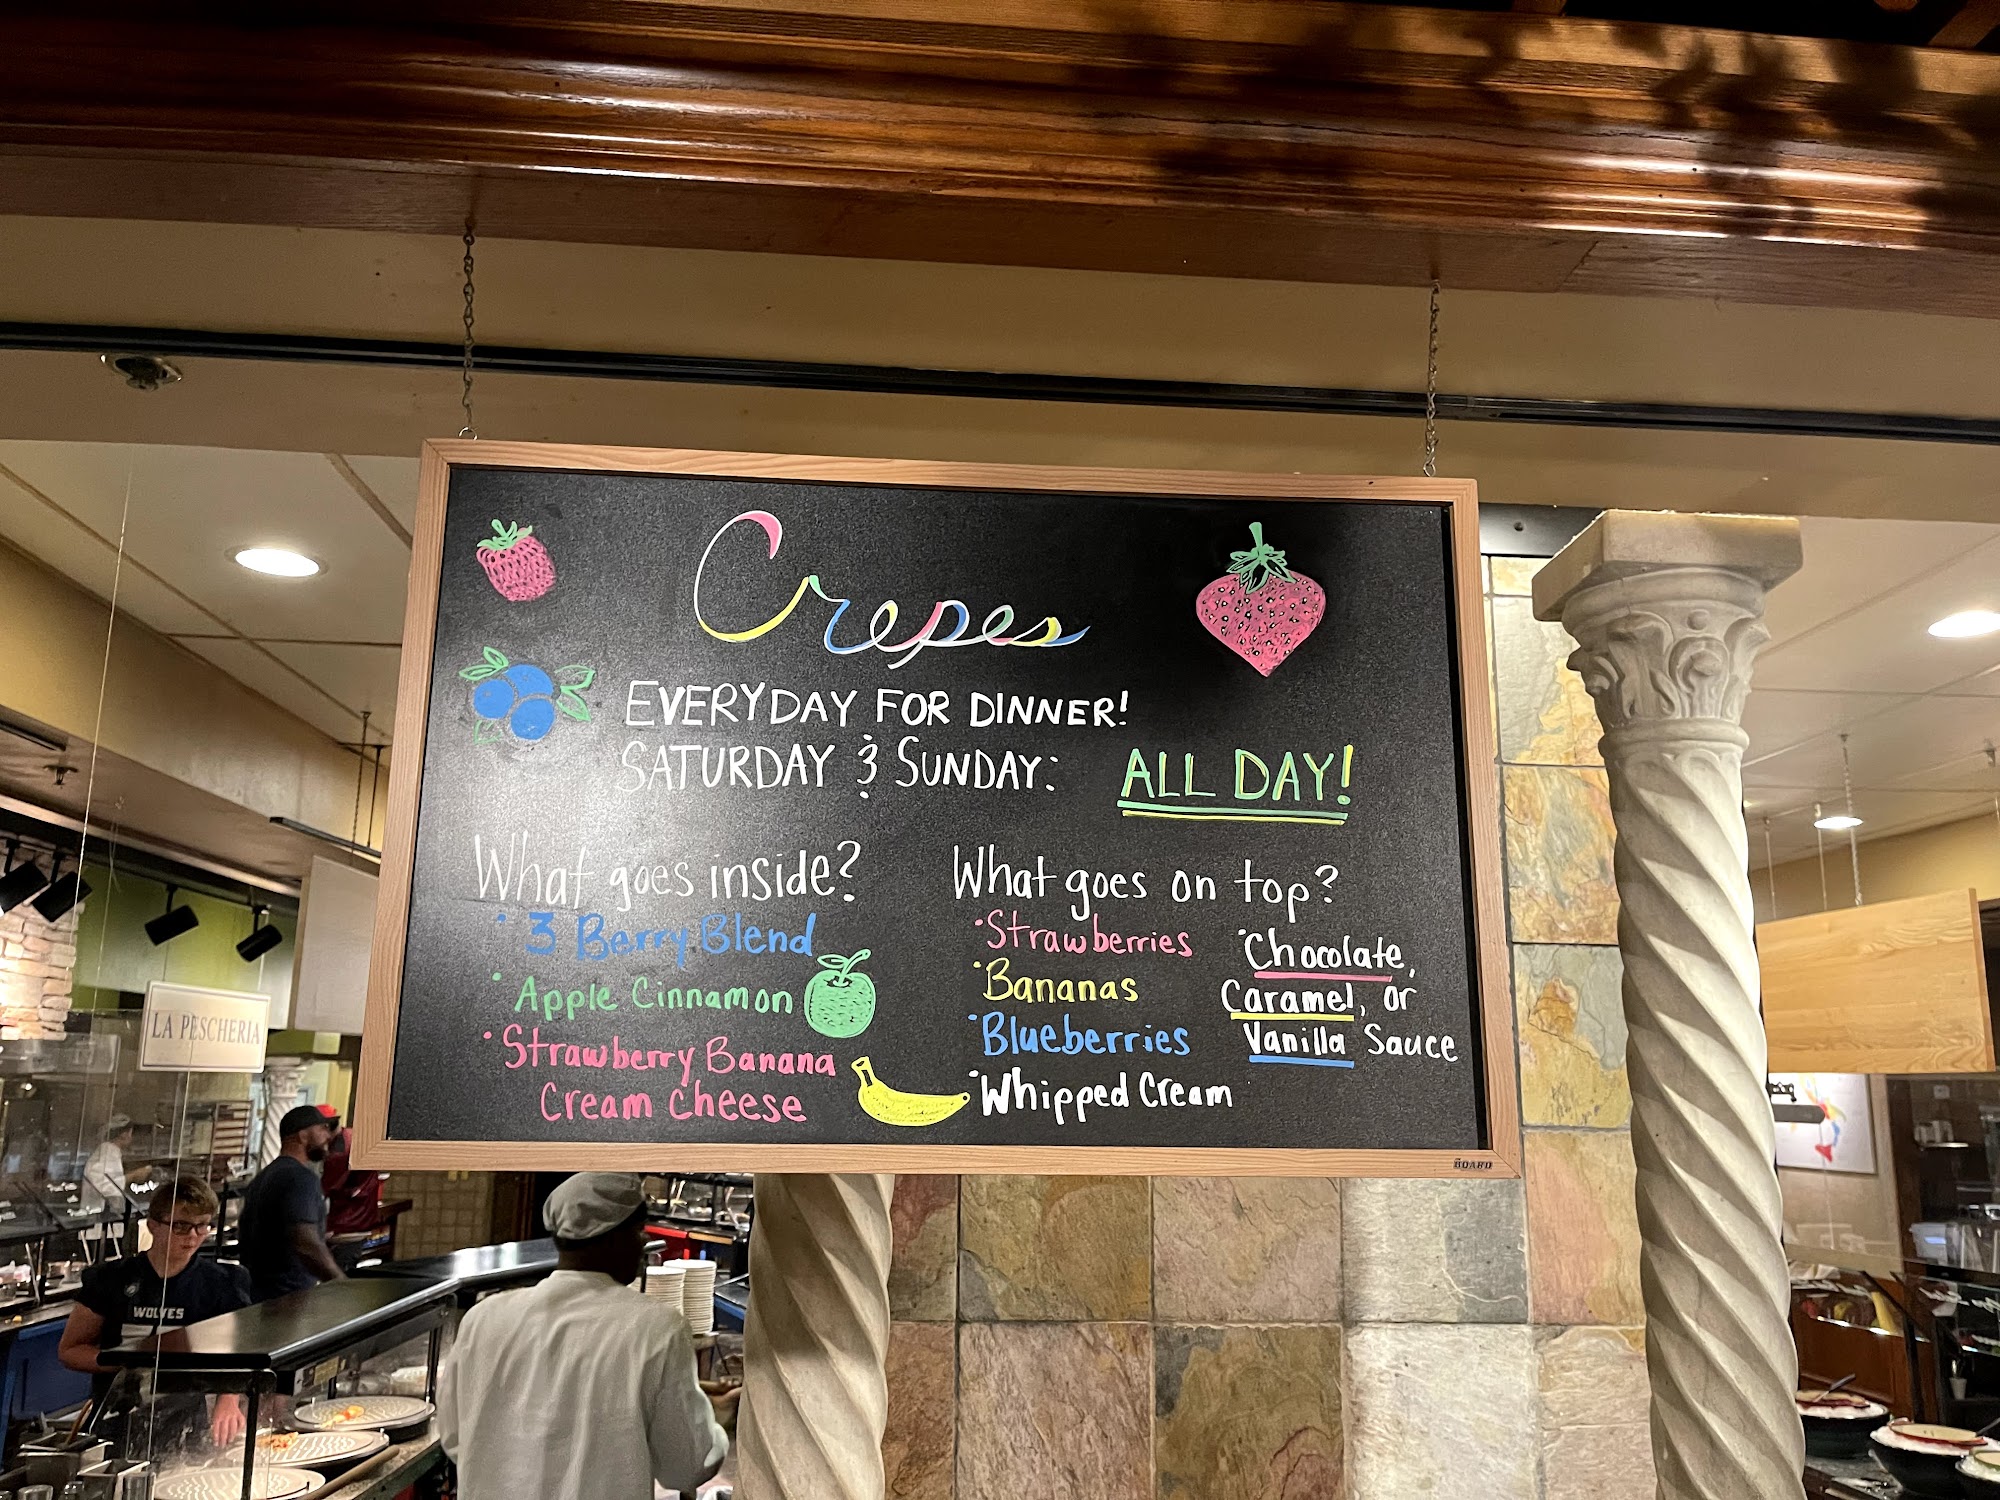 Crepes
EVERYDAY FOR DINNER!
SATURDAY & SUNDAY: ALL DAY!
What goes inside?
• 3 Berry Blend
• Apple Cinnamon
• Strawberry Banana
Cream Cheese
What goes on top?
• Strawberries
• Bananas
• Blueberries
• Whipped Cream
• Chocolate,
Caramel, or
Vanilla Sauce
BOARD
LA PESCHERIA
WOLVES